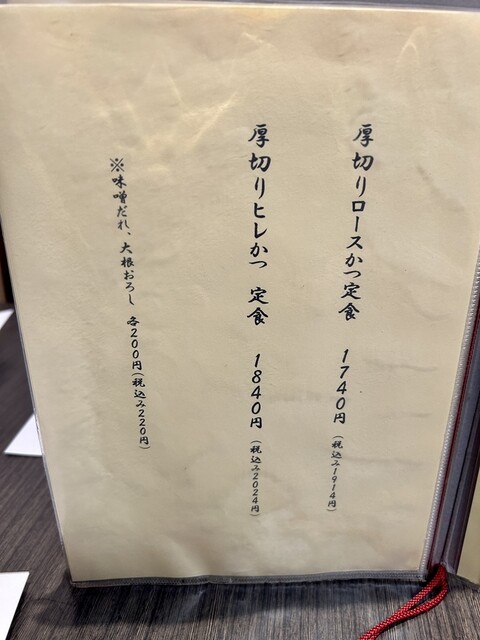 厚切りロースかつ定食 1740円(税込み1914円)
厚切りヒレかつ 定食 1840円(税込み2024円)
※味噌だれ、大根おろし 各200円(税込み220円)